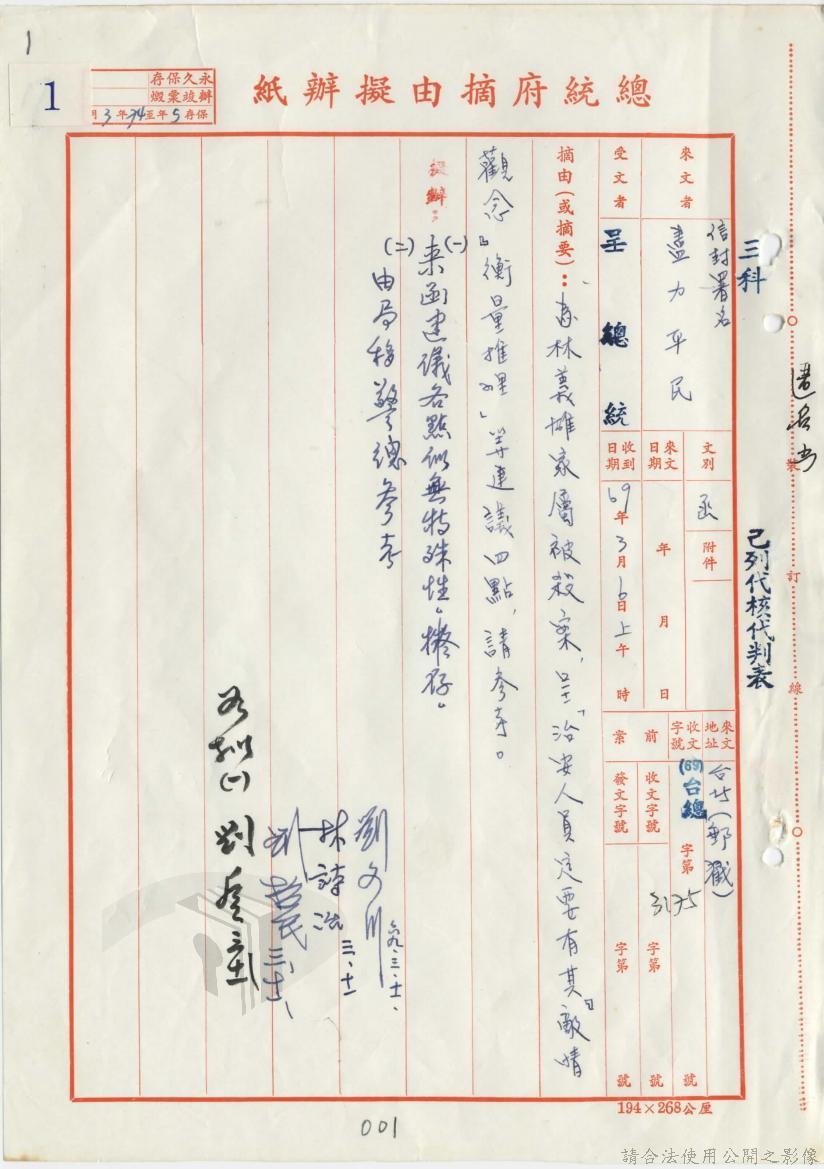 1
1
永久保存
辦竣彙燬
保存5年至74年3月
總統府摘由擬辦紙
三科
匿名書
已列代核代判表
裝
訂
線
來文者
信封署名
盡力平民
文別
函
附件
來文地址
台北(郵戳)
受文者
呈總統
來文日期
年 月 日
收到日期
69年3月6日上午 時
收文字號
(69)台總 字第 3175 號
前案
收文字號 字第 號
發文字號 字第 號
摘由(或摘要):為林義雄家屬被殺案,呈「治安人員定要有其『敵情
觀念』衡量推理」等建議四點,請參考。
擬辦:
(一)來函建議各點似無特殊性。擬存。
(二)由局移警總參考
劉文川 六九、三、十一、
林詩治 三、十一
劉哲民 三、十一、
194×268公厘
001
請合法使用公開之影像